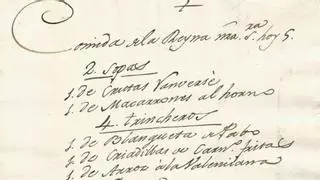 Comida de la Reyna nra. Sra. hoy 5.
2. sopas
1. de Crutas
1. de Macarrones al horno
4. trincheros
1. de Blanqueta de Pabo
1. de Criadillas de Carno. fritas
1. de Arroz à la Valenciana